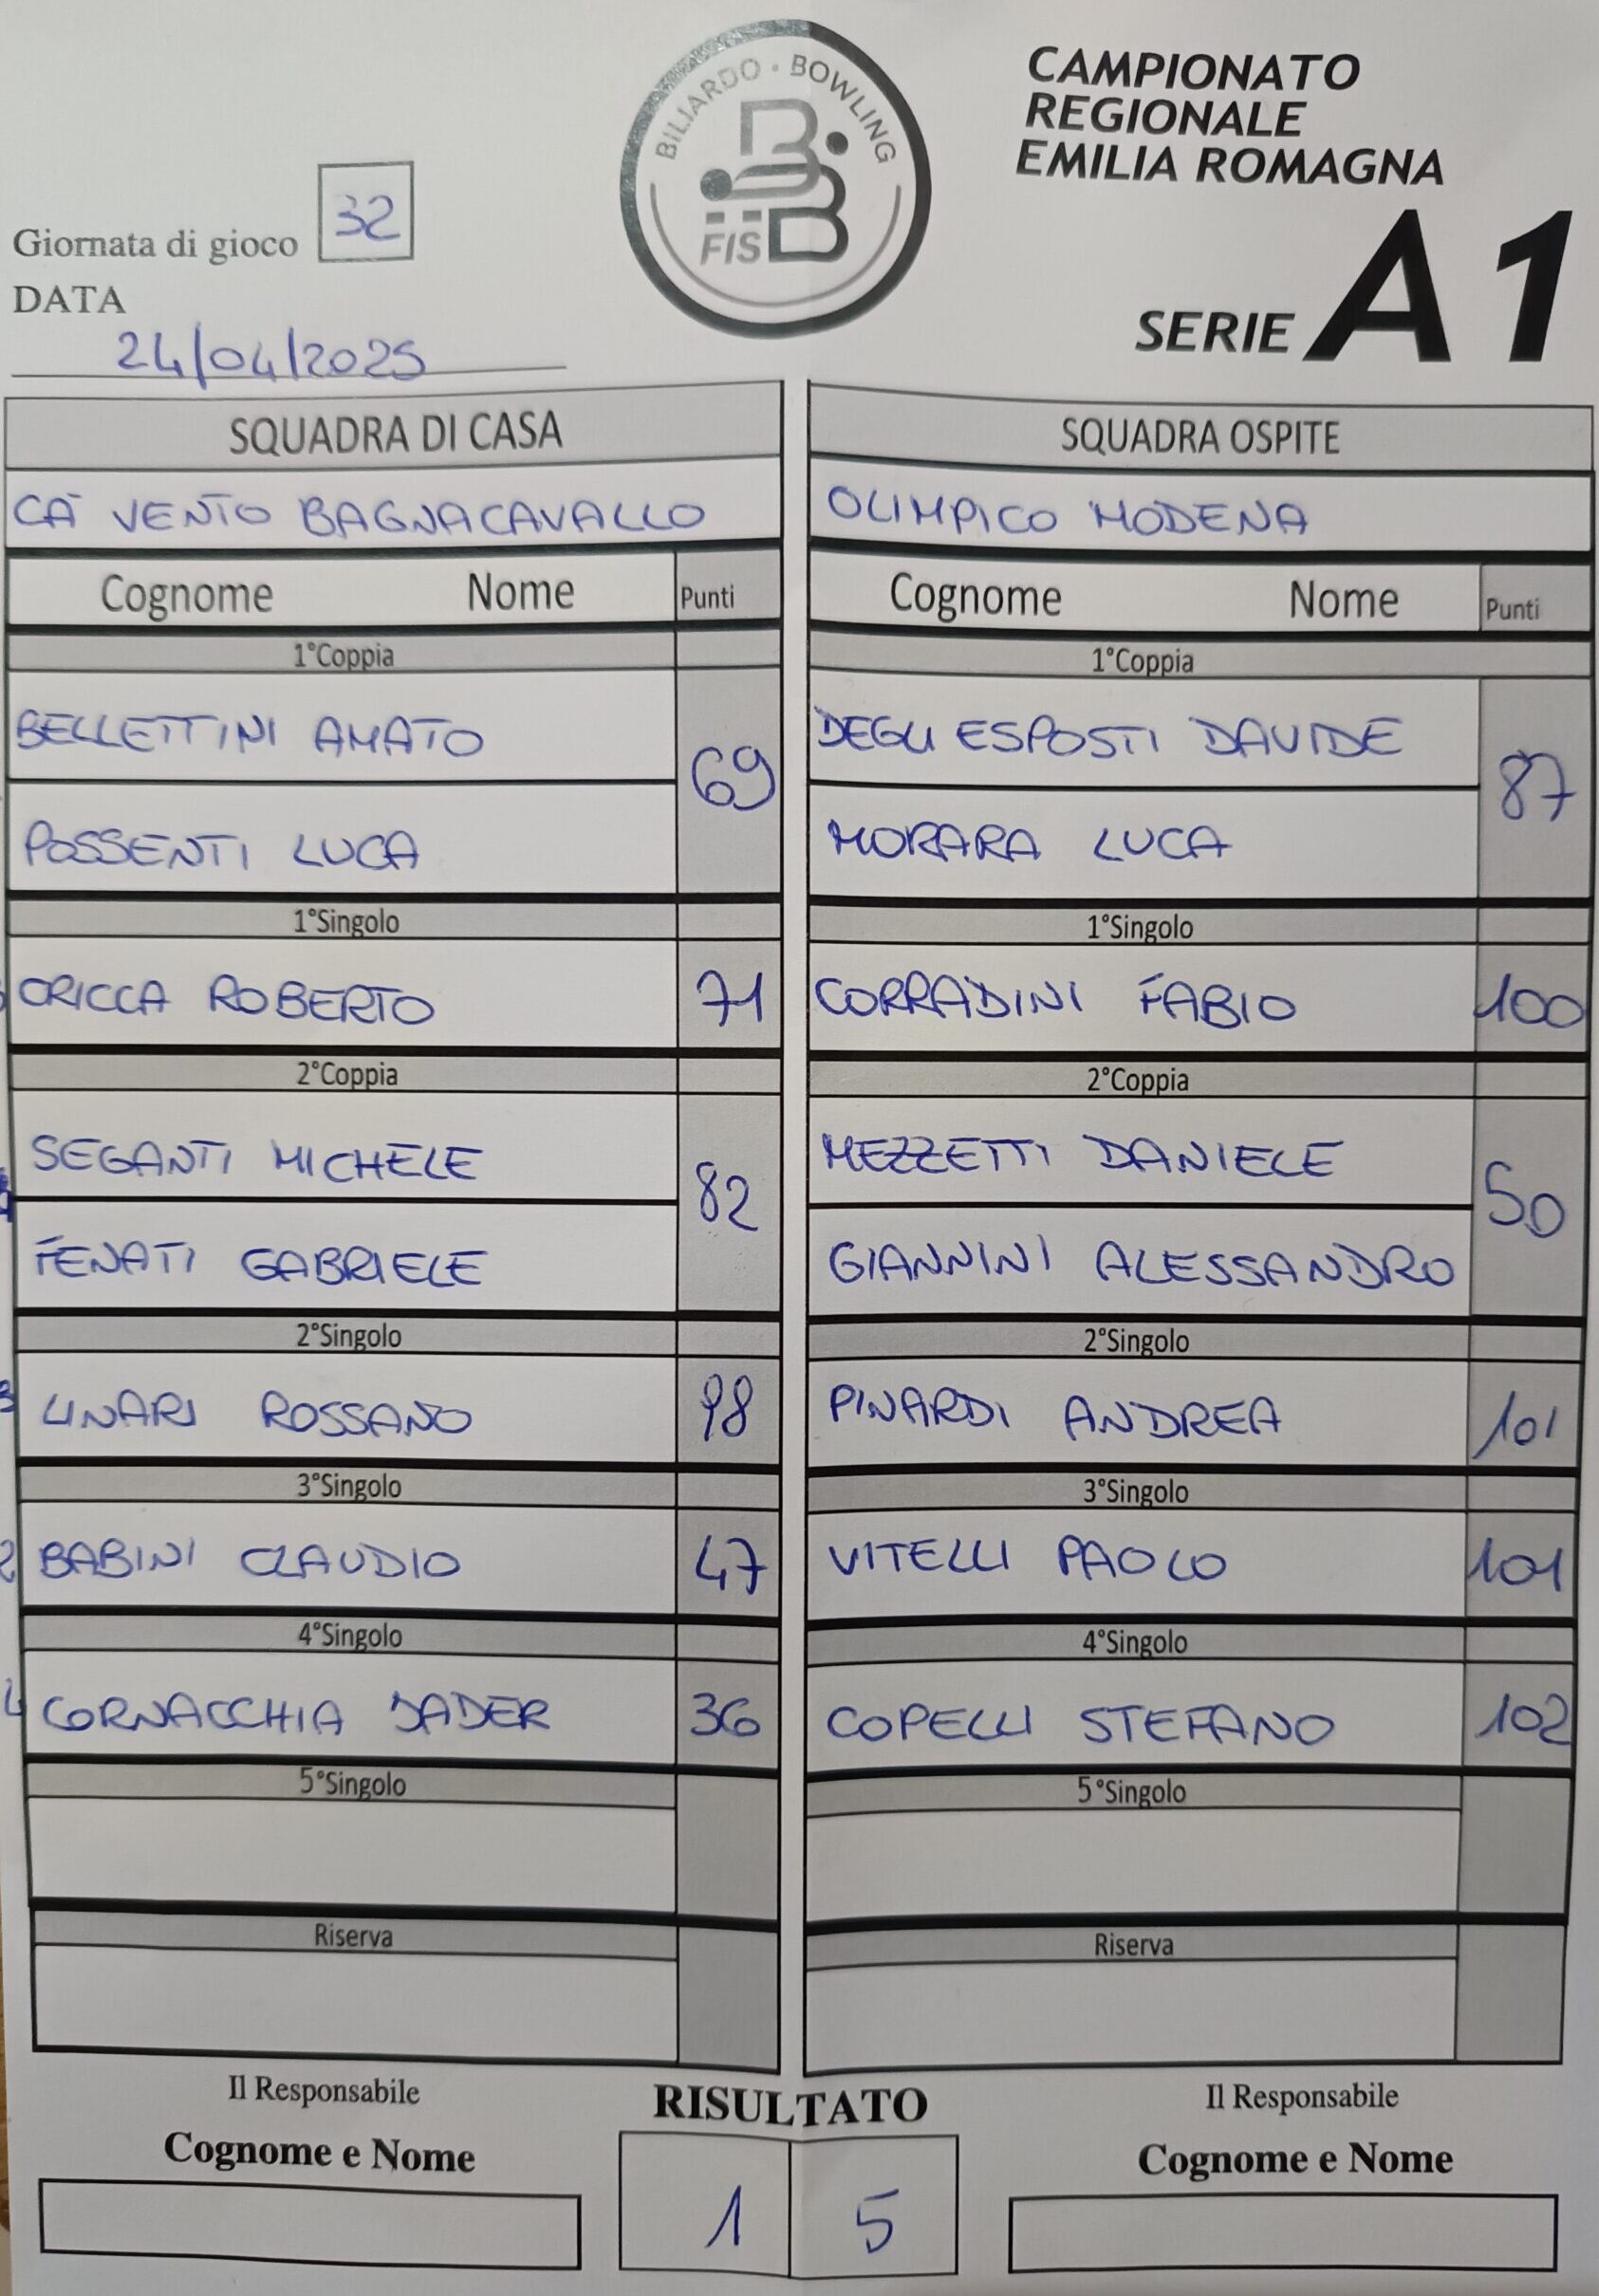 BILIARDO · BOWLING
FISBB
CAMPIONATO
REGIONALE
EMILIA ROMAGNA
SERIE A1
Giornata di gioco 32
DATA
24/04/2025
SQUADRA DI CASA
CA' VENTO BAGNACAVALLO
Cognome Nome Punti
1°Coppia
BELLETTINI AMATO
69
POSSENTI LUCA
1°Singolo
CRICCA ROBERTO 71
2°Coppia
SEGANTI MICHELE
82
FENATI GABRIELE
2°Singolo
LINARI ROSSANO 98
3°Singolo
BABINI CLAUDIO 47
4°Singolo
CORNACCHIA JADER 36
5°Singolo
Riserva
SQUADRA OSPITE
OLIMPICO MODENA
Cognome Nome Punti
1°Coppia
DEGLI ESPOSTI DAVIDE
87
MORARA LUCA
1°Singolo
CORRADINI FABIO 100
2°Coppia
MEZZETTI DANIELE
50
GIANNINI ALESSANDRO
2°Singolo
PINARDI ANDREA 101
3°Singolo
VITELLI PAOLO 101
4°Singolo
COPELLI STEFANO 102
5°Singolo
Riserva
Il Responsabile
Cognome e Nome
RISULTATO
1 5
Il Responsabile
Cognome e Nome